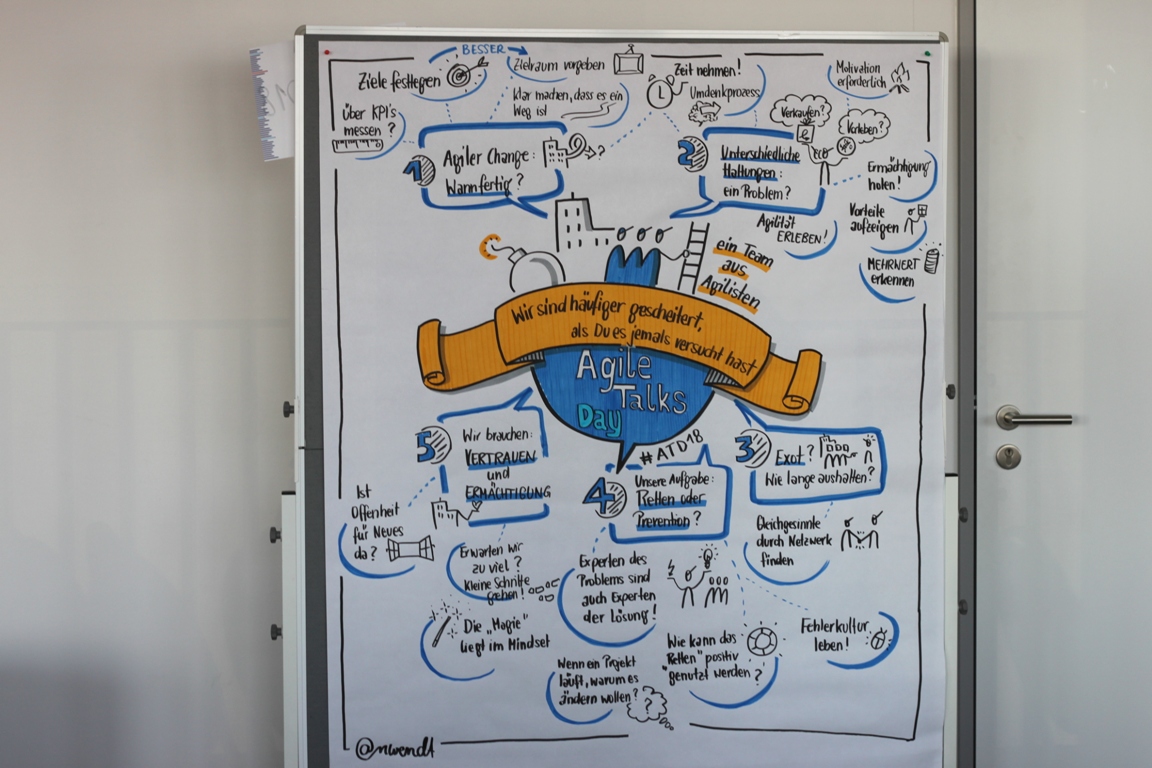 BESSER
Ziele festlegen
Über KPI's
messen?
Zielraum vorgeben
Klar machen, dass es ein
Weg ist
1
Agiler Change:
Wann fertig?
?
Zeit nehmen!
Umdenkprozess
Motivation
erforderlich
Verkaufen?
Vorleben?
2
Unterschiedliche
Haltungen:
ein Problem?
Ermächtigung
holen!
Vorteile
aufzeigen
MEHRWERT
erkennen
Agilität
ERLEBEN!
ein Team
aus
Agilisten
Wir sind häufiger gescheitert,
als Du es jemals versucht hast
Agile
Talks
Day
#ATD18
3
Exot?
Wie lange aushalten?
Gleichgesinnte
durch Netzwerk
finden
Fehlerkultur
leben!
4
Unsere Aufgabe:
Retten oder
Prevention?
Experten des
Problems sind
auch Experten
der Lösung!
Wie kann das
"Retten" positiv
genutzt werden?
Wenn ein Projekt
läuft, warum es
ändern wollen?
?
5
Wir brauchen:
VERTRAUEN
und
ERMÄCHTIGUNG
Ist
Offenheit
für Neues
da?
Erwarten wir
zu viel?
Kleine Schritte
gehen!
Die „Magie"
liegt im Mindset
@nwendt